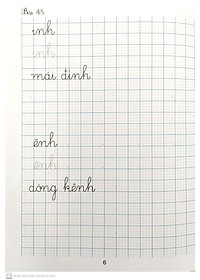 Bài 45:
inh
inh
mái đình
ênh
ênh
dòng kênh
6